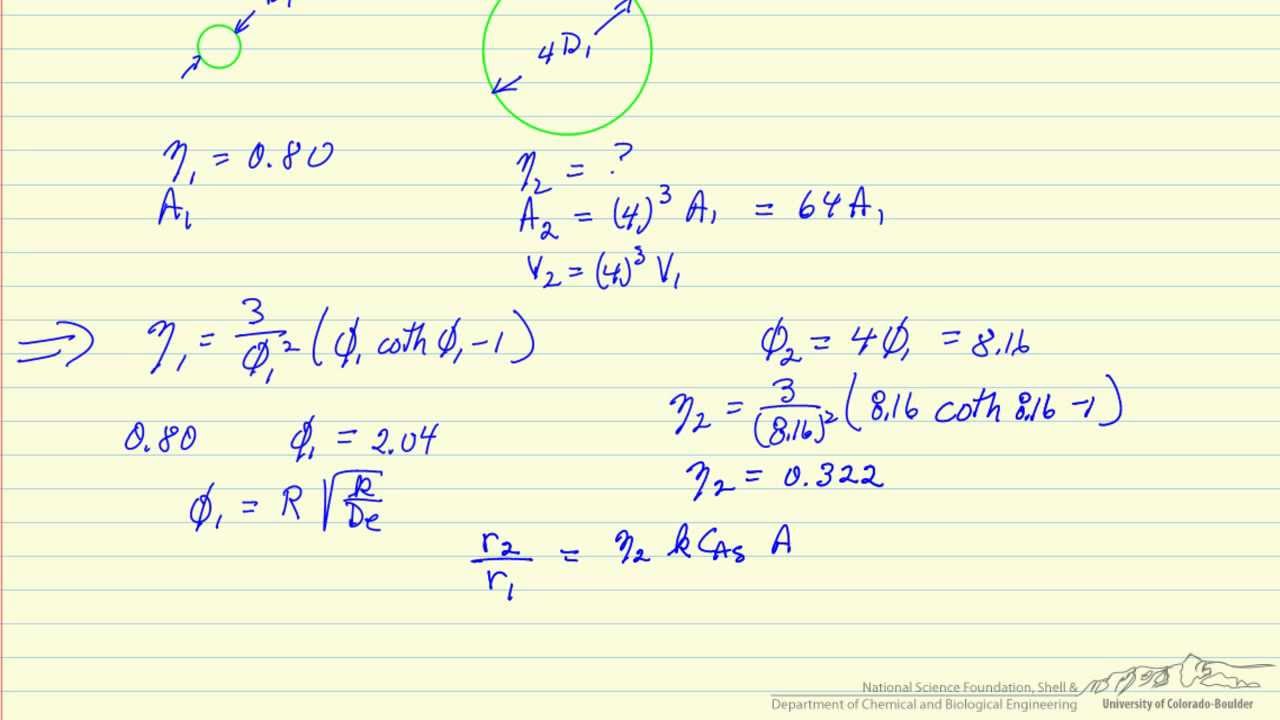 4D₁
η₁ = 0.80
η₂ = ?
A₁
A₂ = (4)³ A₁ = 64A₁
V₂ = (4)³ V₁
⇒ η₁ = 3/ϕ₁² (ϕ₁ coth ϕ₁ - 1)
ϕ₂ = 4ϕ₁ = 8.16
η₂ = 3/(8.16)² (8.16 coth 8.16 - 1)
0.80 ϕ₁ = 2.04
η₂ = 0.322
ϕ₁ = R √(k/De)
r₂/r₁ = η₂ k C_AS A
National Science Foundation, Shell &
Department of Chemical and Biological Engineering
University of Colorado-Boulder